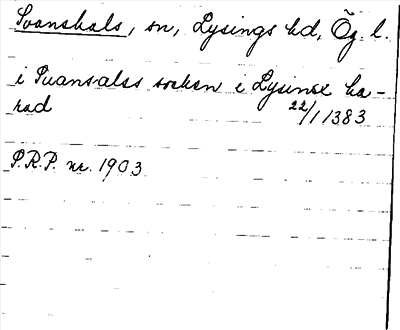 Svanshals, sn, Lysings hd, Ög. l.
i Suansalss sochen i Lysinxx ha-
rad 22/1 1383
P.R.P. nr. 1903